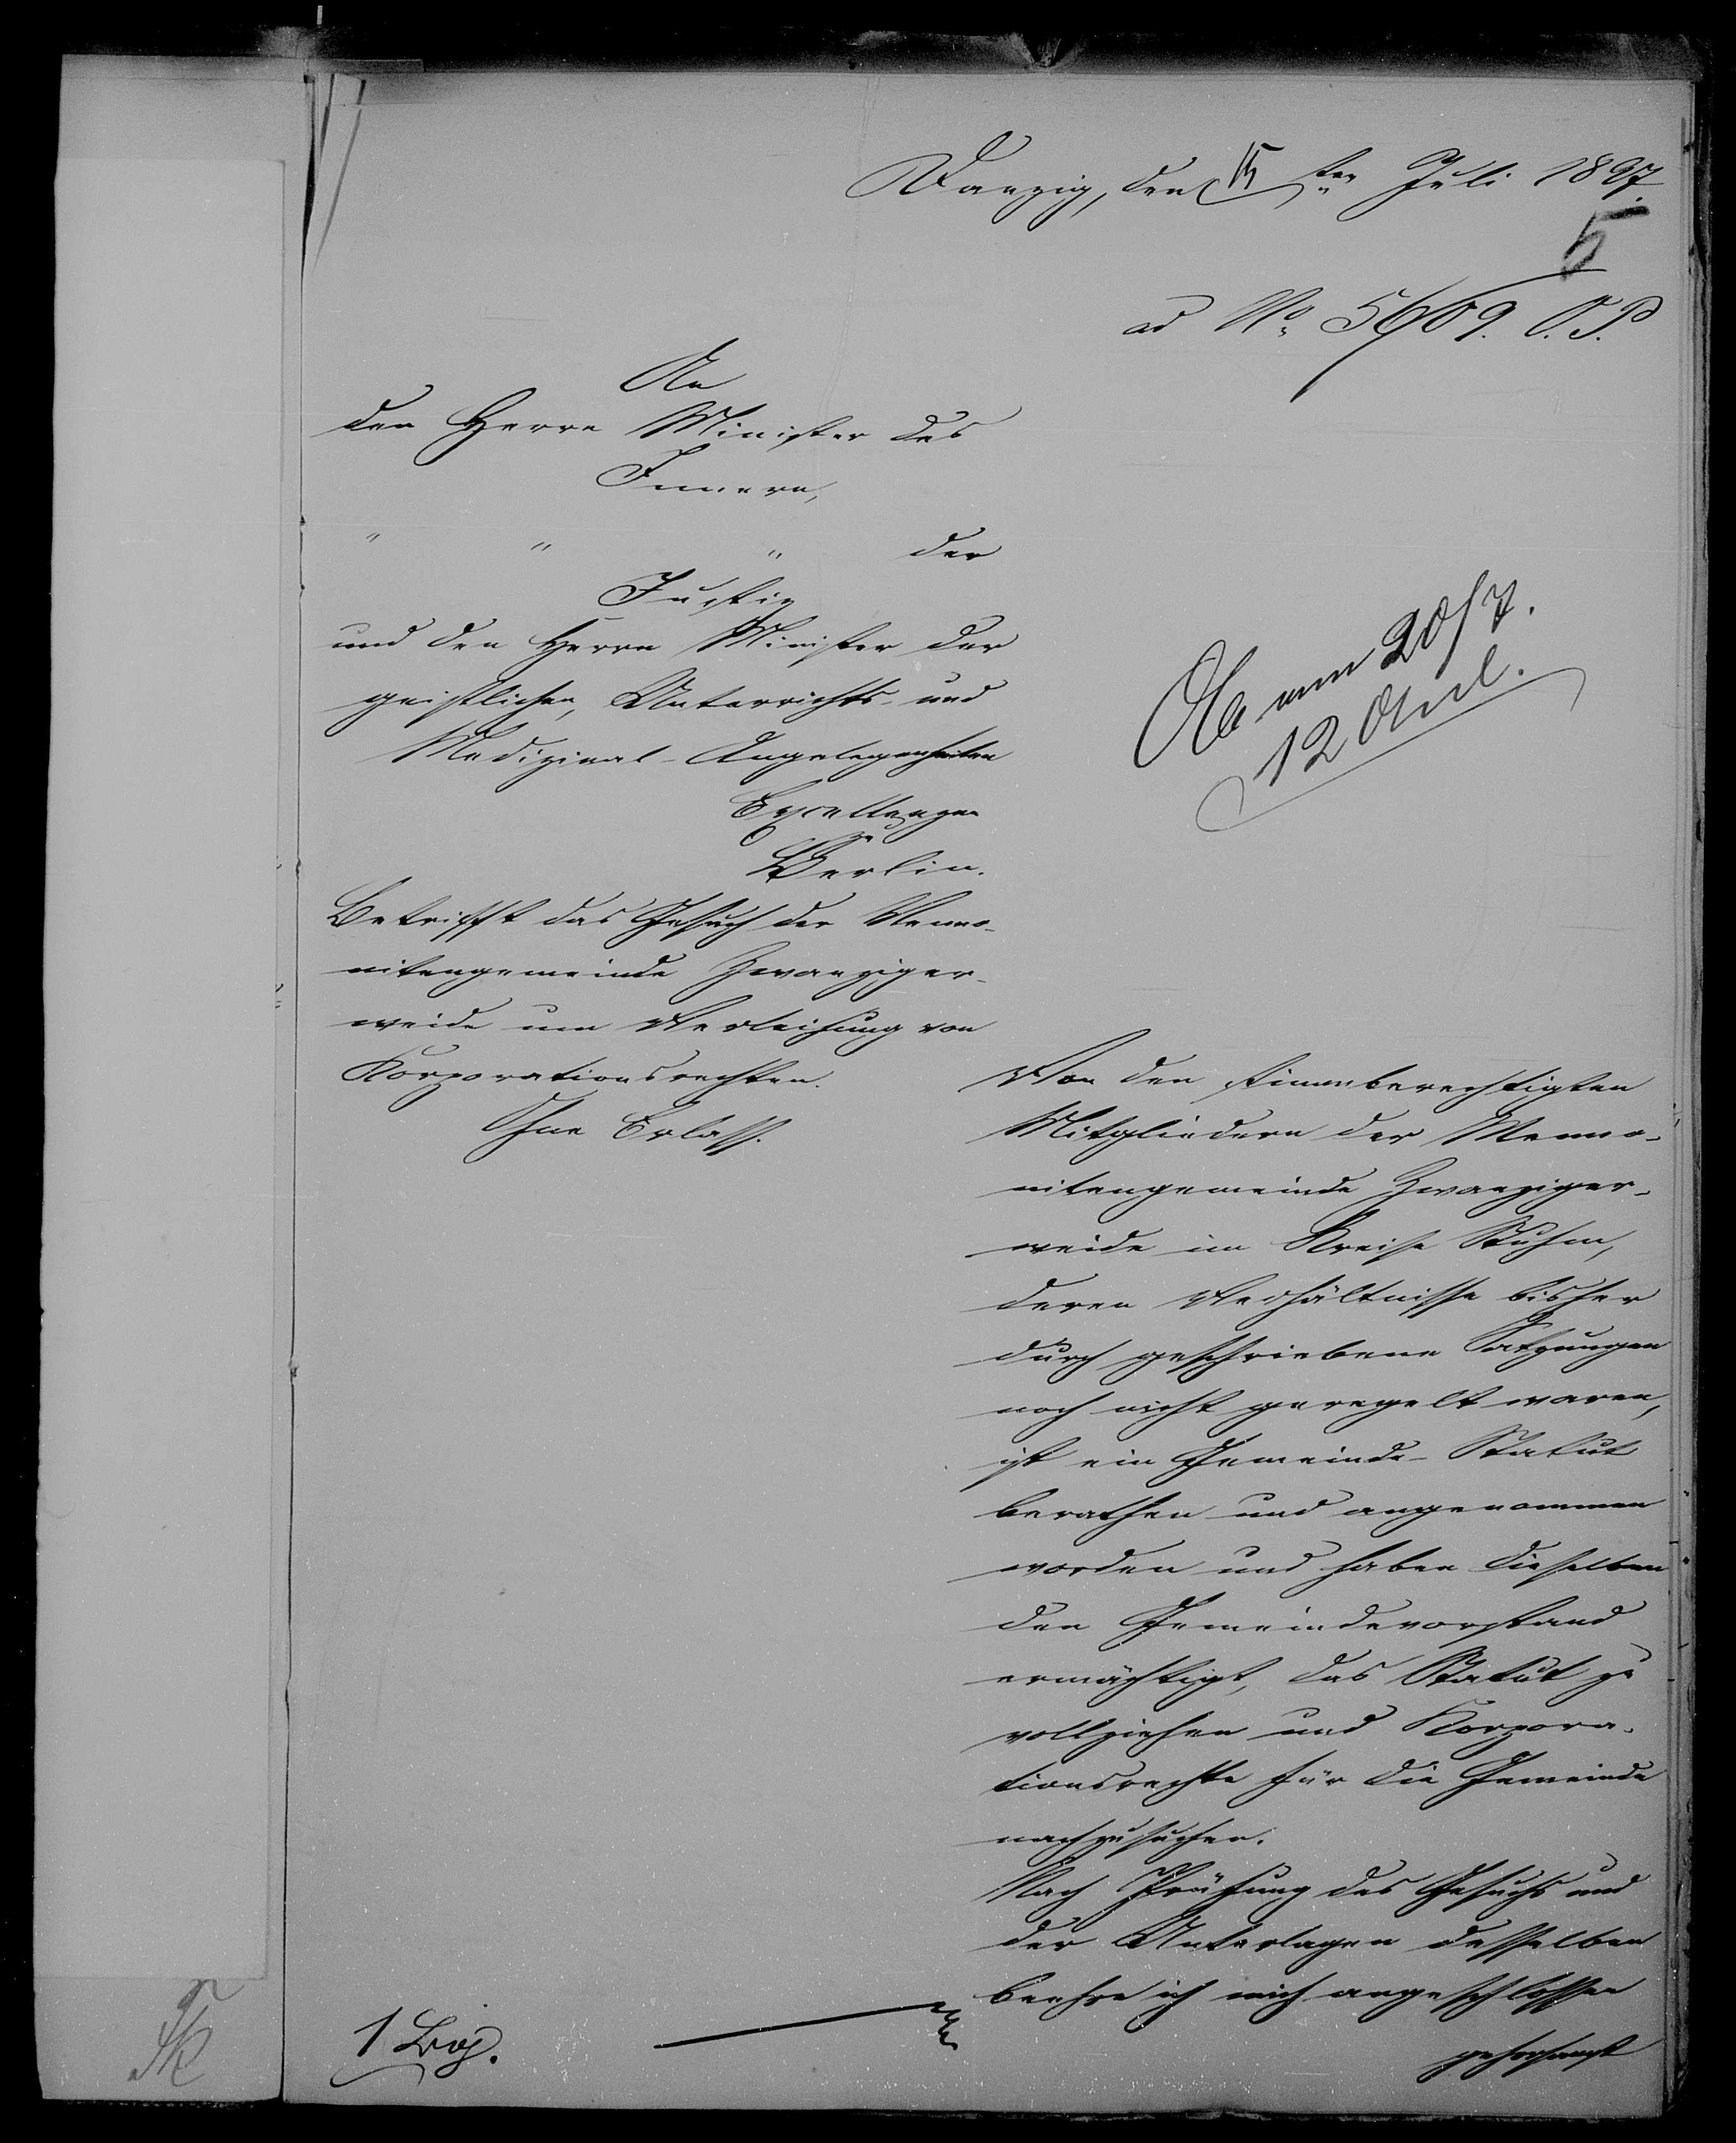 Danzig, den 15 ten Juli 1897.
5
ad No 5669. O. P.
An
den Herrn Minister des
Innern,
" " " der
Justiz
und den Herrn Minister der
geistlichen, Unterrichts- und
Medizinal-Angelegenheiten
Excellenzen
zu
Berlin.
20/7.
12
Betrifft das Gesuch der Menno-
nitengemeinde Zwanziger-
weide um Verleihung von
Korporationsrechten.
Ohne Erlaß.
Von den stimmberechtigten
Mitgliedern der Menno-
nitengemeinde Zwanziger-
weide im Kreise Stuhm,
deren Verhältnisse bisher
durch geschriebene Satzungen
noch nicht geregelt waren,
ist ein Gemeinde-Statut
berathen und angenommen
worden und haben dieselben
den Gemeindevorstand
ermächtigt, das Statut zu
vollziehen und Korpora-
tionsrechte für die Gemeinde
nachzusuchen.
Nach Prüfung des Gesuchs und
der Unterlagen desselben
beehre ich mich angeschlossen
gehorsamst
1